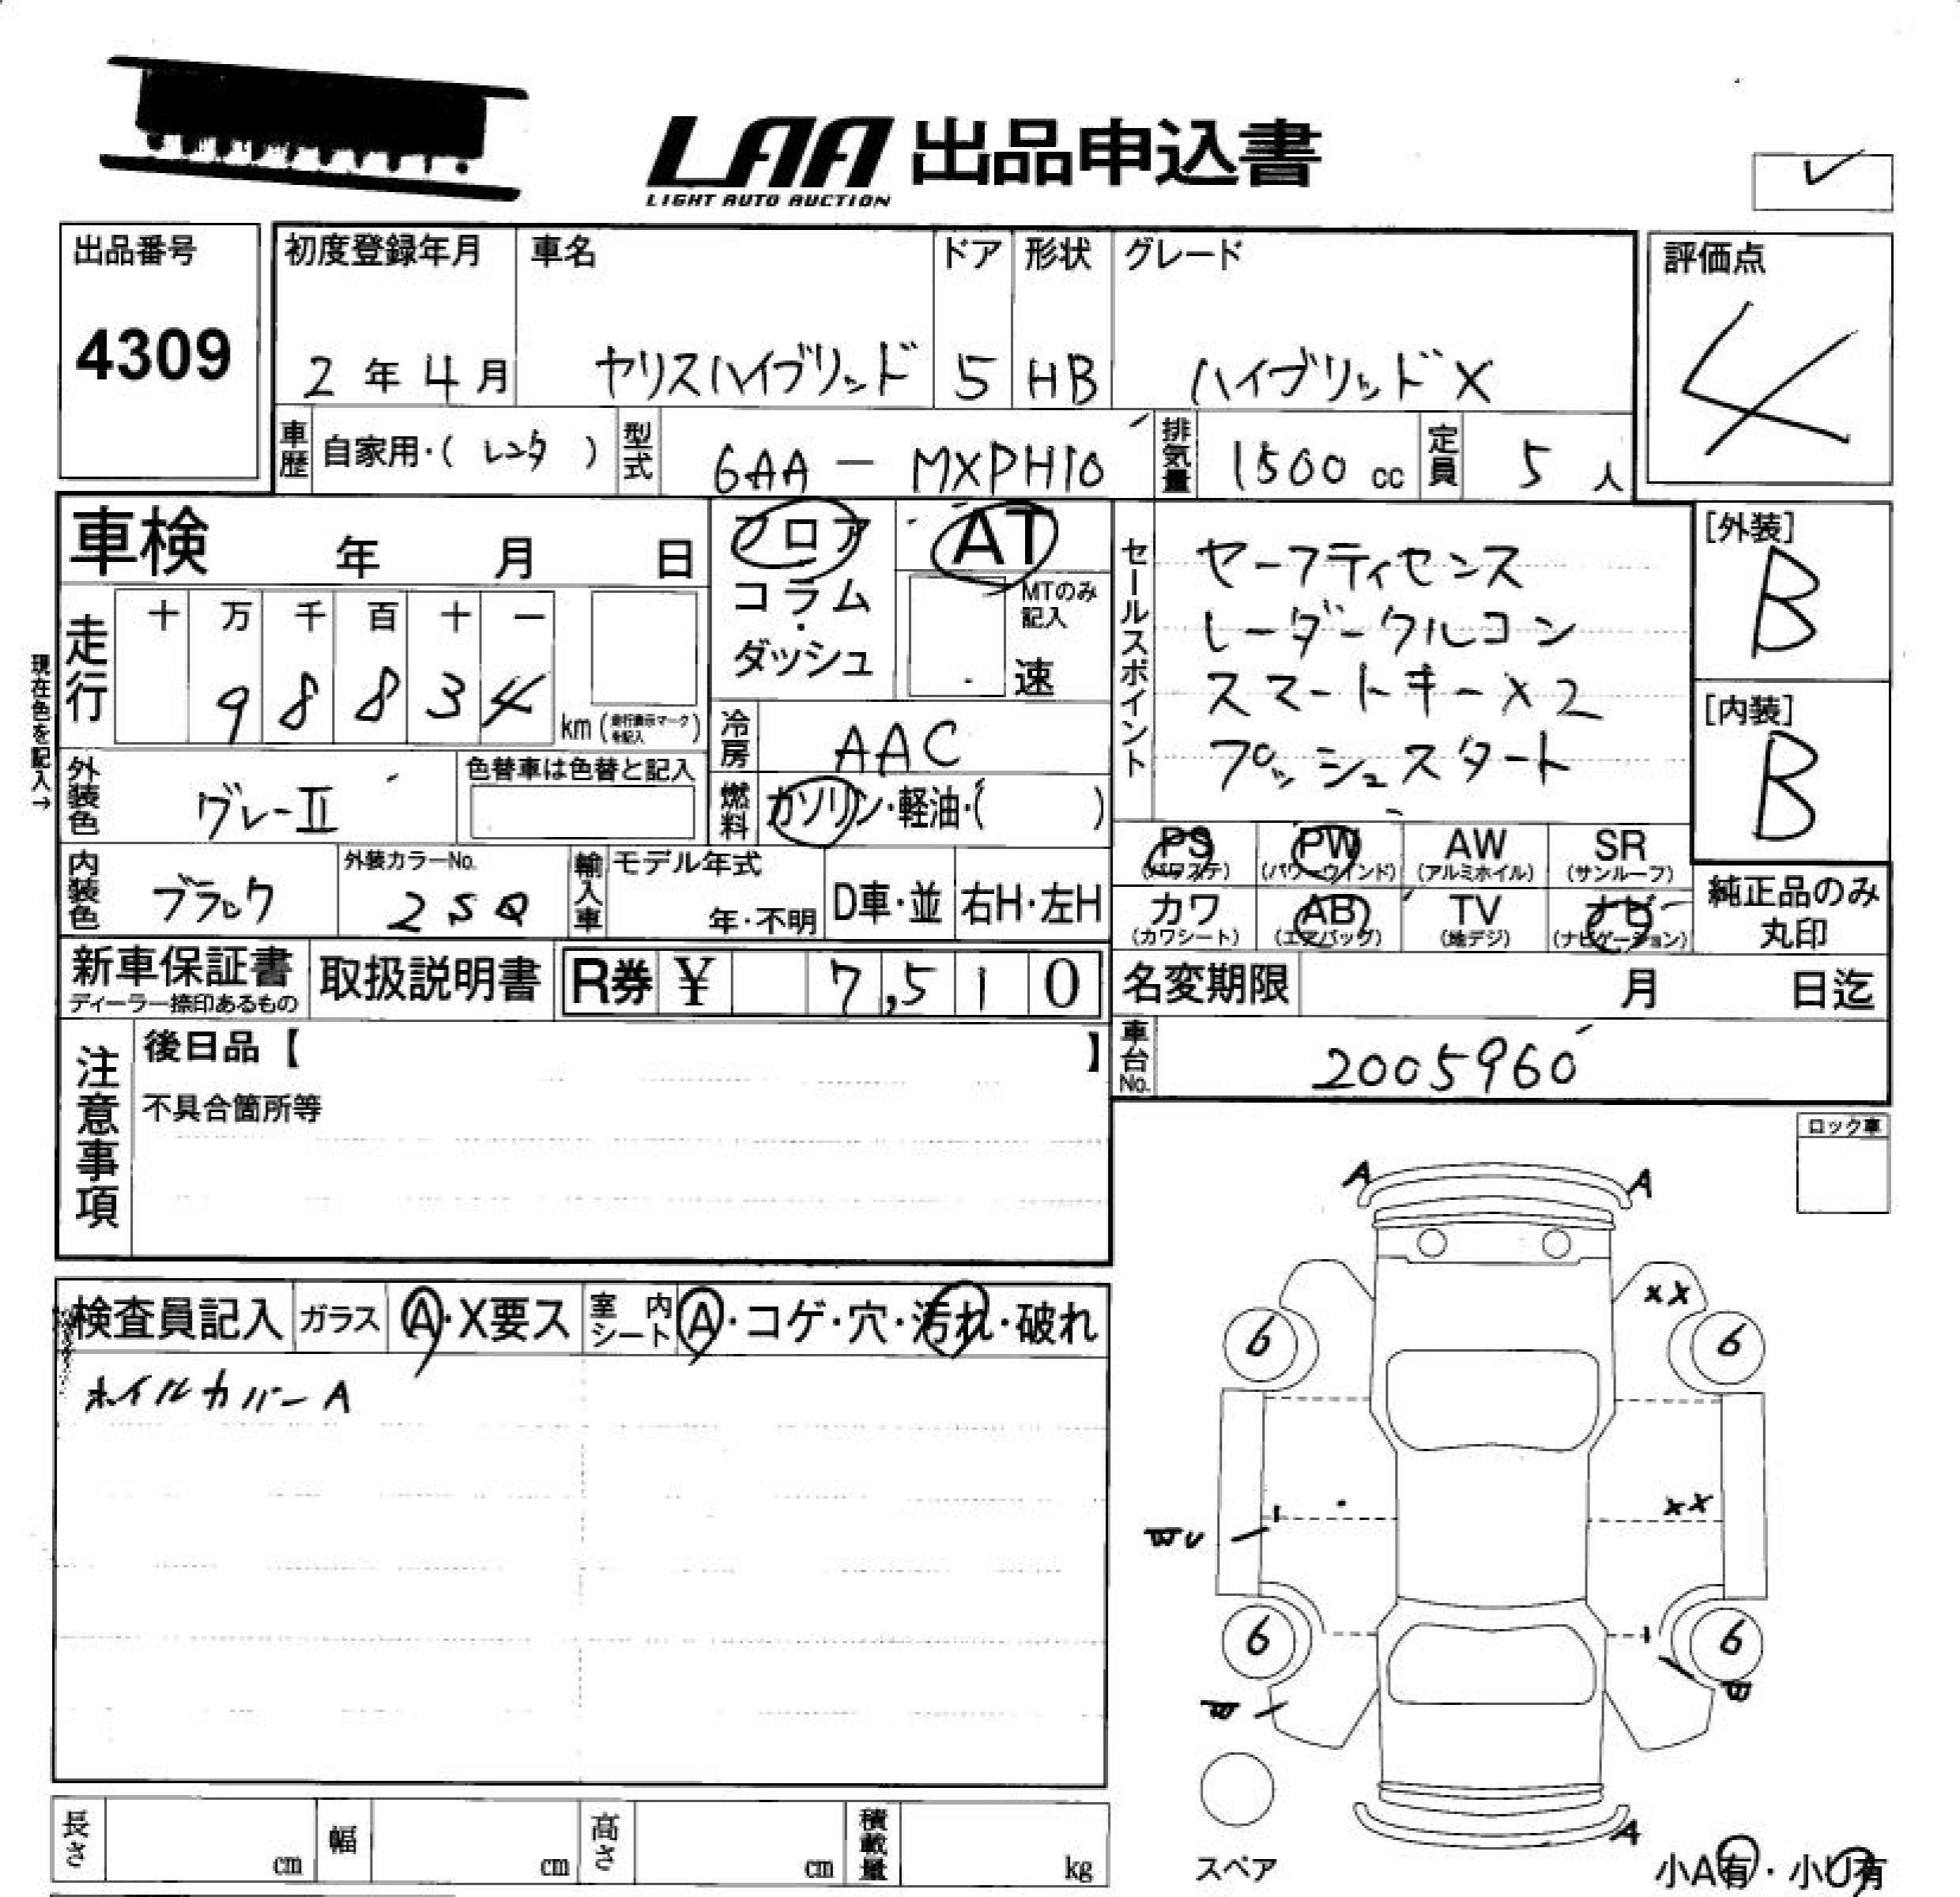 LAA 出品申込書
LIGHT AUTO AUCTION
出品番号
4309
初度登録年月 車名 ドア 形状 グレード
2年4月 ヤリスハイブリッド 5 HB ハイブリッドX
評価点
4
車歴 自家用・(レンタ) 型式 6AA-MXPH10 排気量 1500cc 定員 5人
車検 年 月 日
フロア
コラム
・
ダッシュ
AT
MTのみ
記入
速
走行 十 万 千 百 十 一
9 8 8 3 4 km(走行表示マークを記入)
現在色を記入→
冷房 AAC
燃料 ガソリン・軽油・( )
外装色 グレーII 色替車は色替と記入
内装色 ブラック 外装カラーNo. 2SQ
輸入車 モデル年式 年・不明 D車・並 右H・左H
新車保証書 取扱説明書 R券 ¥ 7,510
ディーラー捺印あるもの
セールスポイント
セーフティセンス
レーダークルコン
スマートキーX2
プッシュスタート
[外装]
B
[内装]
B
PS PW AW SR
(パワステ) (パワーウインド) (アルミホイル) (サンルーフ)
カワ AB TV ナビ
(カワシート) (エアバッグ) (地デジ) (ナビゲーション)
純正品のみ
丸印
名変期限 月 日迄
車台No. 2005960
注意事項
後日品【 】
不具合箇所等
ロック車
検査員記入 ガラス A・X要ス 室内シート A・コゲ・穴・汚れ・破れ
ホイルカバーA
A A
XX
6 6
XX
6 6
A
スペア
小A有・小U有
長さ cm 幅 cm 高さ cm 積載量 kg